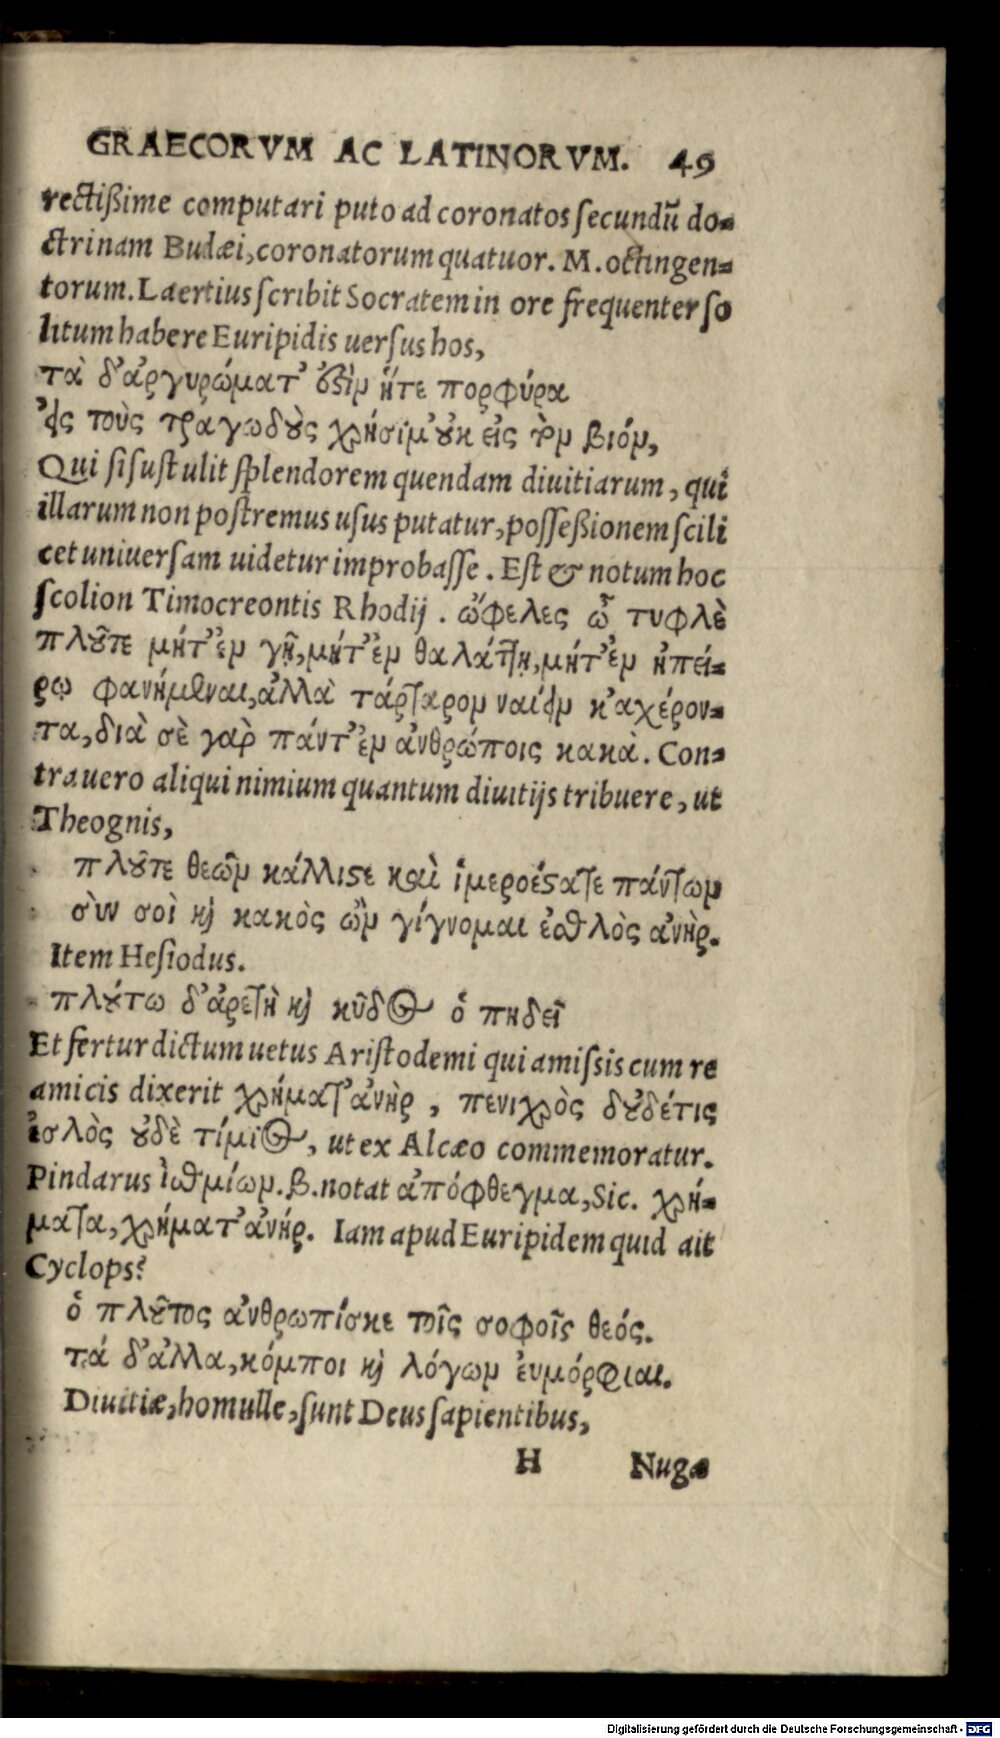 GRAECORVM AC LATINORVM. 49
rectißime computari puto ad coronatos secundũ do-
ctrinam Budæi, coronatorum quatuor. M. octingen-
torum. Laertius scribit Socratem in ore frequenter so
litum habere Euripidis uersus hos,
τὰ δ᾽ἀργυρώματ᾽ ἐστὶν ἥτε πορφύρα
εἰς τοὺς τραγωδοὺς χρήσιμ᾽οὐκ εἰς τὸν βιόν,
Qui si sustulit splendorem quendam diuitiarum, qui
illarum non postremus usus putatur, possessionem scili
cet uniuersam uidetur improbasse. Est & notum hoc
scolion Timocreontis Rhodij. ὤφελες ὦ τυφλὲ
πλοῦτε μήτ᾽ἐν γῇ, μήτ᾽ἐν θαλάττῃ, μήτ᾽ἐν ἠπεί-
ρῳ φανήμεναι, ἀλλὰ τάρταρον ναίειν κ᾽αχέρον-
τα, διὰ σὲ γὰρ πάντ᾽ἐν ἀνθρώποις κακὰ. Con-
tra uero aliqui nimium quantum diuitijs tribuere, ut
Theognis,
πλοῦτε θεῶν κάλλιστε καὶ ἱμεροέστατε πάντων
σὺν σοὶ καὶ κακὸς ὢν γίγνομαι ἐσθλὸς ἀνὴρ.
Item Hesiodus.
πλούτω δ᾽ἀρετὴ καὶ κῦδος ὀπηδεῖ
Et fertur dictum uetus Aristodemi qui amissis cum re
amicis dixerit χρήματ᾽ἀνὴρ, πενιχρὸς δ᾽οὐδέτις
ἐσλὸς οὐδὲ τίμιος, ut ex Alcæo commemoratur.
Pindarus ἰσθμίων. β. notat ἀπόφθεγμα, Sic. χρή-
ματα, χρήματ᾽ἀνήρ. Iam apud Euripidem quid ait
Cyclops?
ὁ πλοῦτος ἀνθρωπίσκε τοῖς σοφοῖς θεός.
τά δ᾽ἀλλα, κόμποι καὶ λόγων ἐυμόρφιαι.
Diuitiæ, homulle, sunt Deus sapientibus,
H Nugæ
Digitalisierung gefördert durch die Deutsche Forschungsgemeinschaft - DFG